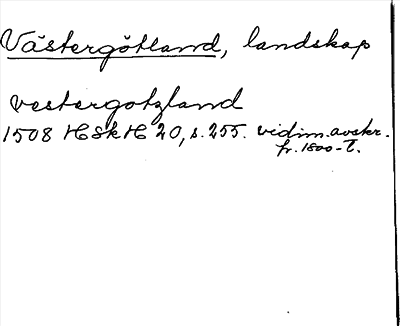 Västergötland, landskap
vestergotzland
1508 HSkH 20, s. 255. vidim. avskr.
fr. 1800-t.